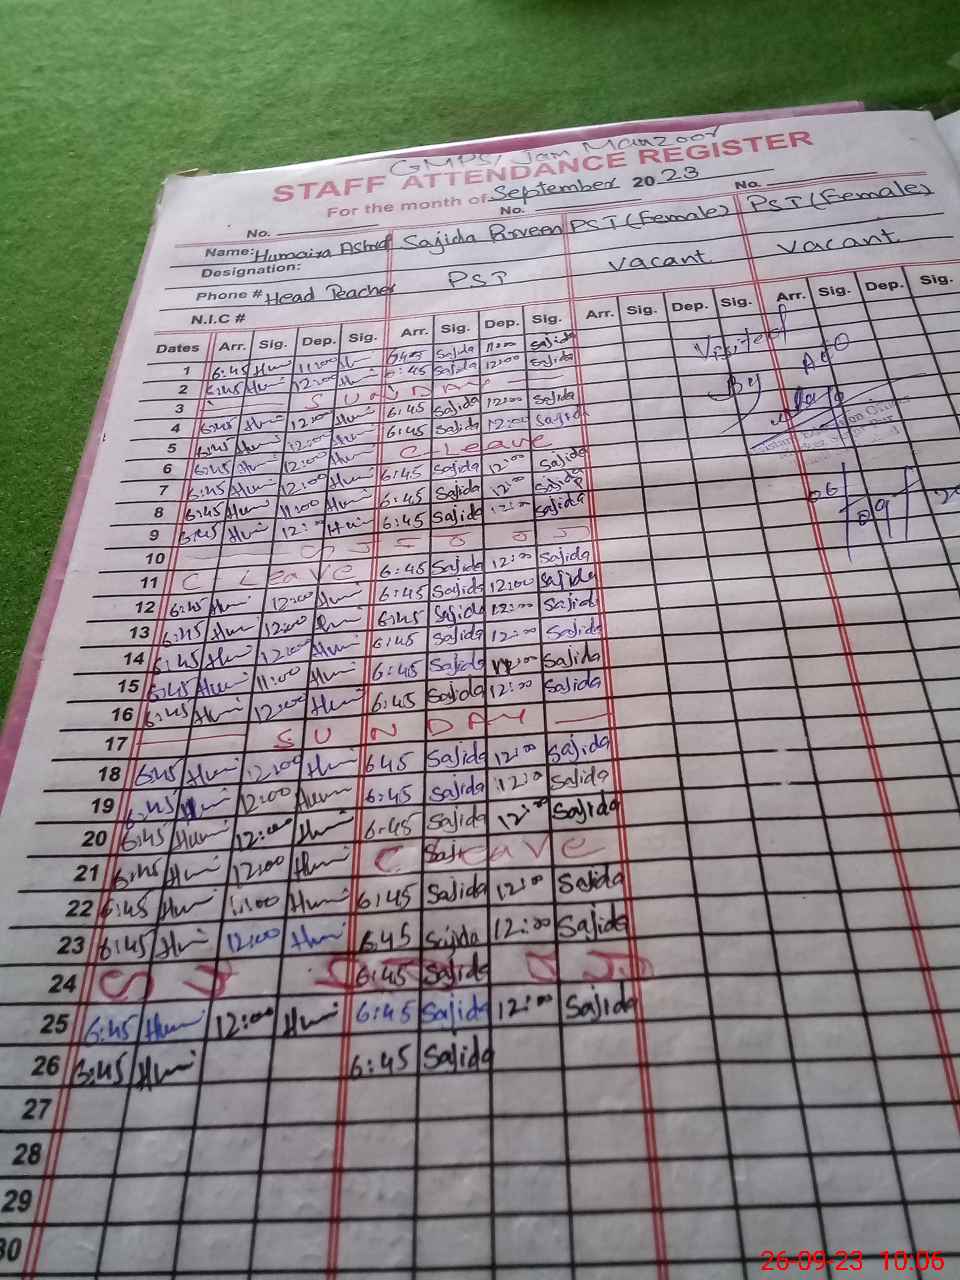 GMPS/ Jam Manzoor
STAFF ATTENDANCE REGISTER
For the month of September 2023
No. No. No.
Name: Humaira Ashraf Sajida Parveen PST (Female) PST (Female)
Designation: Head Teacher PST Vacant Vacant
Phone #
N.I.C #
Dates Arr. Sig. Dep. Sig. Arr. Sig. Dep. Sig. Arr. Sig. Dep. Sig. Arr. Sig. Dep. Sig.
1 6:45 Hum 11:00 6:45 Sajida 11:00 Sajida
2 6:45 Hum 12:00 Hum 6:45 Sajida 12:00 Sajida
3 SUNDAY
4 6:45 Hum 12:00 Hum 6:45 Sajida 12:00 Sajida
5 6:45 Hum 12:00 Hum 6:45 Sajida 12:00 Sajida
6 6:45 Hum 12:00 Hum C-Leave
7 6:45 Hum 12:00 Hum 6:45 Sajida 12:00 Sajida
8 6:45 Hum 11:00 Hum 6:45 Sajida 12:00 Sajida
9 6:45 Hum 12:00 Hum 6:45 Sajida 12:00 Sajida
10
11 C-Leave 6:45 Sajida 12:00 Sajida
12 6:45 Hum 12:00 Hum 6:45 Sajida 12:00 Sajida
13 6:45 Hum 12:00 Hum 6:45 Sajida 12:00 Sajida
14 6:45 Hum 12:00 Hum 6:45 Sajida 12:00 Sajida
15 6:45 Hum 11:00 Hum 6:45 Sajida Sajida
16 6:45 Hum 12:00 Hum 6:45 Sajida 12:00 Sajida
17 SUNDAY
18 6:45 Hum 12:00 Hum 6:45 Sajida 12:00 Sajida
19 6:45 Hum 12:00 Hum 6:45 Sajida 12:00 Sajida
20 6:45 Hum 12:00 Hum 6:45 Sajida 12:00 Sajida
21 6:45 Hum 12:00 Hum C Leave
22 6:45 Hum 11:00 Hum 6:45 Sajida 12:00 Sajida
23 6:45 Hum 12:00 Hum 6:45 Sajida 12:00 Sajida
24 6:45 Sajida
25 6:45 Hum 12:00 Hum 6:45 Sajida 12:00 Sajida
26 6:45 Hum 6:45 Sajida
27
28
29
30
Visited
By AEO
26/09/20
26-09-23 10:06